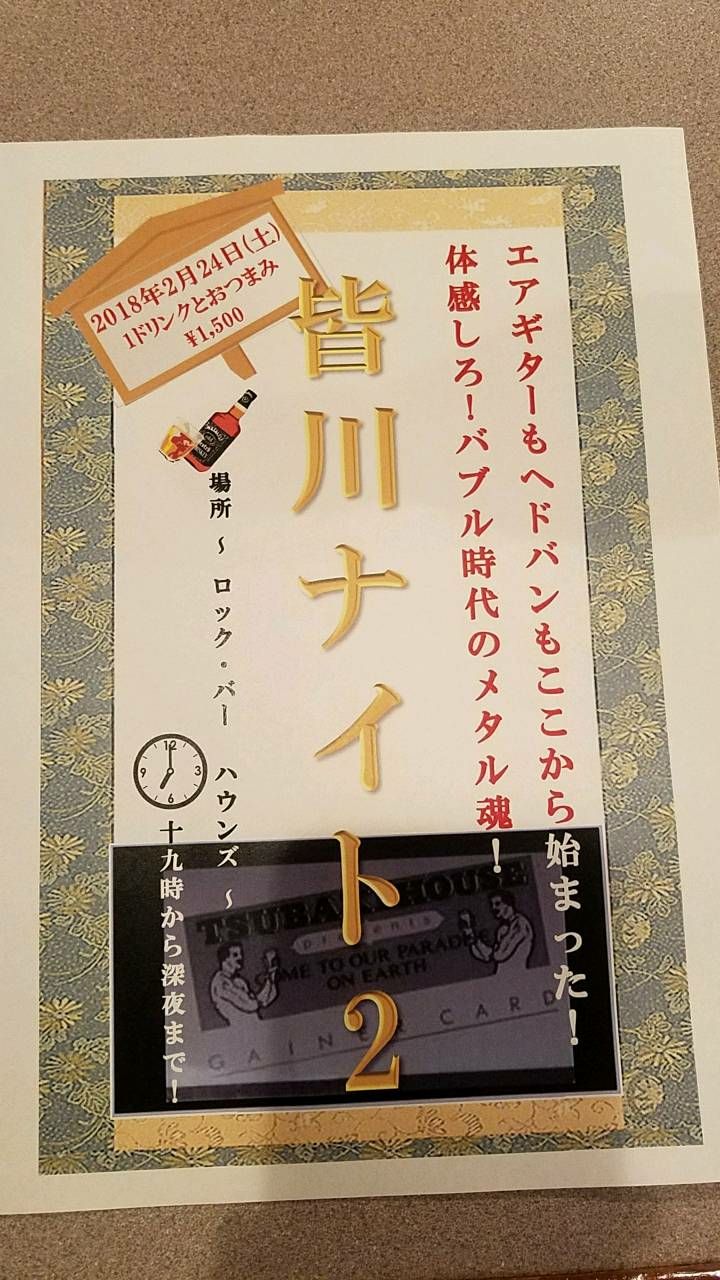 エアギターもヘドバンもここから始まった!
体感しろ!バブル時代のメタル魂!
皆川ナイト2
2018年2月24日(土)
1ドリンクとおつまみ
¥1,500
場所 ~ ロック・バー ハウンズ ~
十九時から深夜まで!
12
3
6
9
TSUBAKI HOUSE
presents
COME TO OUR PARADISE
ON EARTH
GAINER CARD